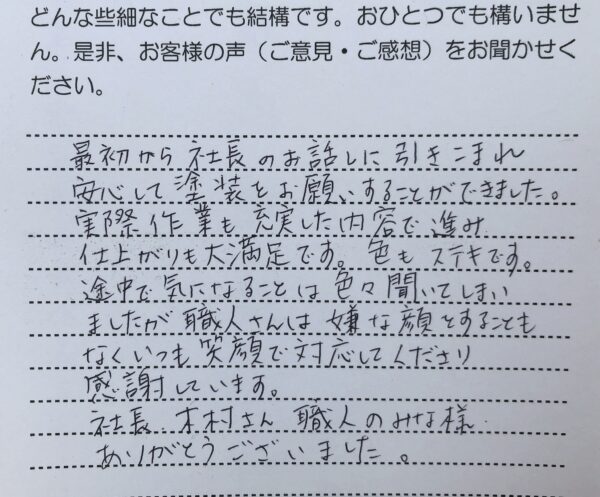 どんな些細なことでも結構です。おひとつでも構いませ
ん。是非、お客様の声（ご意見・ご感想）をお聞かせく
ださい。
最初から社長のお話しに引きこまれ
安心して塗装をお願いすることができました。
実際作業も充実した内容で進み
仕上がりも大満足です。色もステキです。
途中で気になることは色々聞いてしまい
ましたが職人さんは嫌な顔をすることも
なくいつも笑顔で対応してくださり
感謝しています。
社長、木村さん 職人のみな様
ありがとうございました。